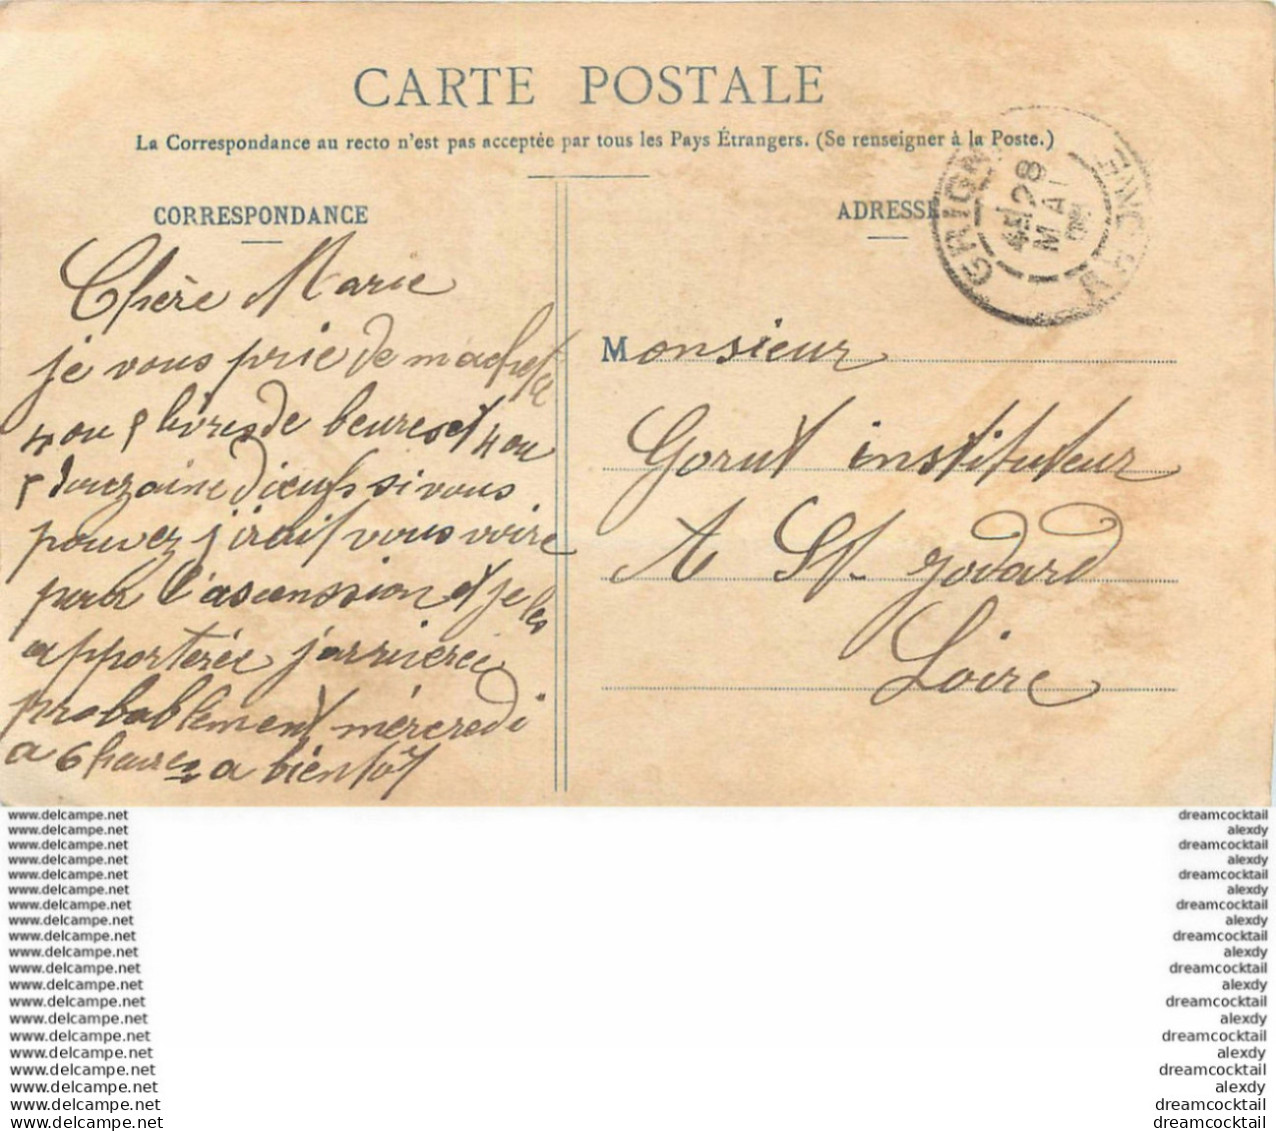 CARTE POSTALE
La Correspondance au recto n'est pas acceptée par tous les Pays Étrangers. (Se renseigner à la Poste.)
CORRESPONDANCE
Chère Marie
je vous prie de m achete
4 ou 5 livres de beures et 4 ou
5 douzaine d'ieufs si vous
pouvez j'irait vous voire
pour l'ascenssion et je les
apporterée j'arriverée
probablement mércredi
a 6 heures a bientôt
ADRESSE
GRIGN
28
MAI
RHONE
Monsieur
Gorut instituteur
A St. godard
Loire
www.delcampe.net
www.delcampe.net
www.delcampe.net
www.delcampe.net
www.delcampe.net
www.delcampe.net
www.delcampe.net
www.delcampe.net
www.delcampe.net
www.delcampe.net
www.delcampe.net
www.delcampe.net
www.delcampe.net
www.delcampe.net
www.delcampe.net
www.delcampe.net
www.delcampe.net
www.delcampe.net
www.delcampe.net
www.delcampe.net
dreamcocktail
alexdy
dreamcocktail
alexdy
dreamcocktail
alexdy
dreamcocktail
alexdy
dreamcocktail
alexdy
dreamcocktail
alexdy
dreamcocktail
alexdy
dreamcocktail
alexdy
dreamcocktail
alexdy
dreamcocktail
dreamcocktail